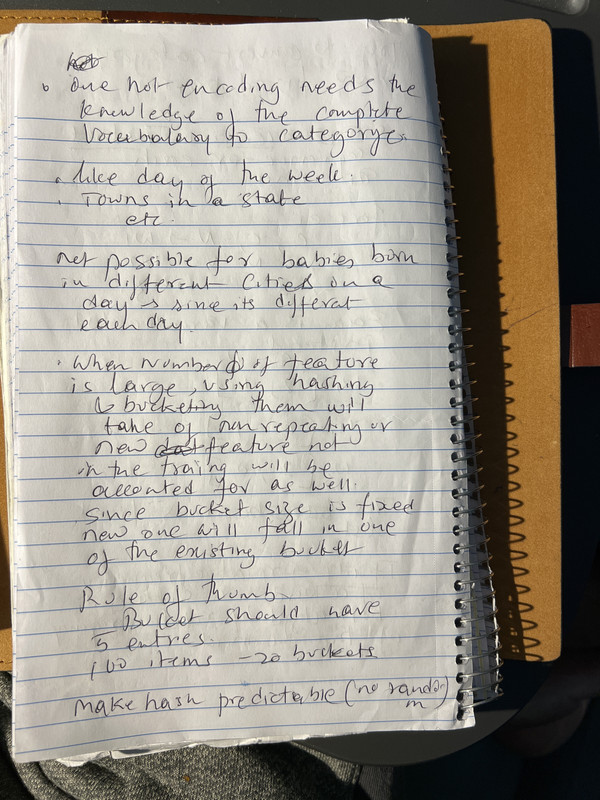 • One hot encoding needs the
knowledge of the complete
Vocabulary to category.
• like day of the week.
• Towns in a state
etc.
not possible for babies born
in different cities on a
day → since its differet
each day.
• When number of feature
is large, using hashing
& bucketing them will
take of non repeating or
new feature not
in the traing will be
accounted for as well.
since bucket size is fixed
new one will fall in one
of the existing bucket
Rule of thumb
Bucket should have
5 entries.
100 items - 20 buckets
make hash predictable (no rando
m)